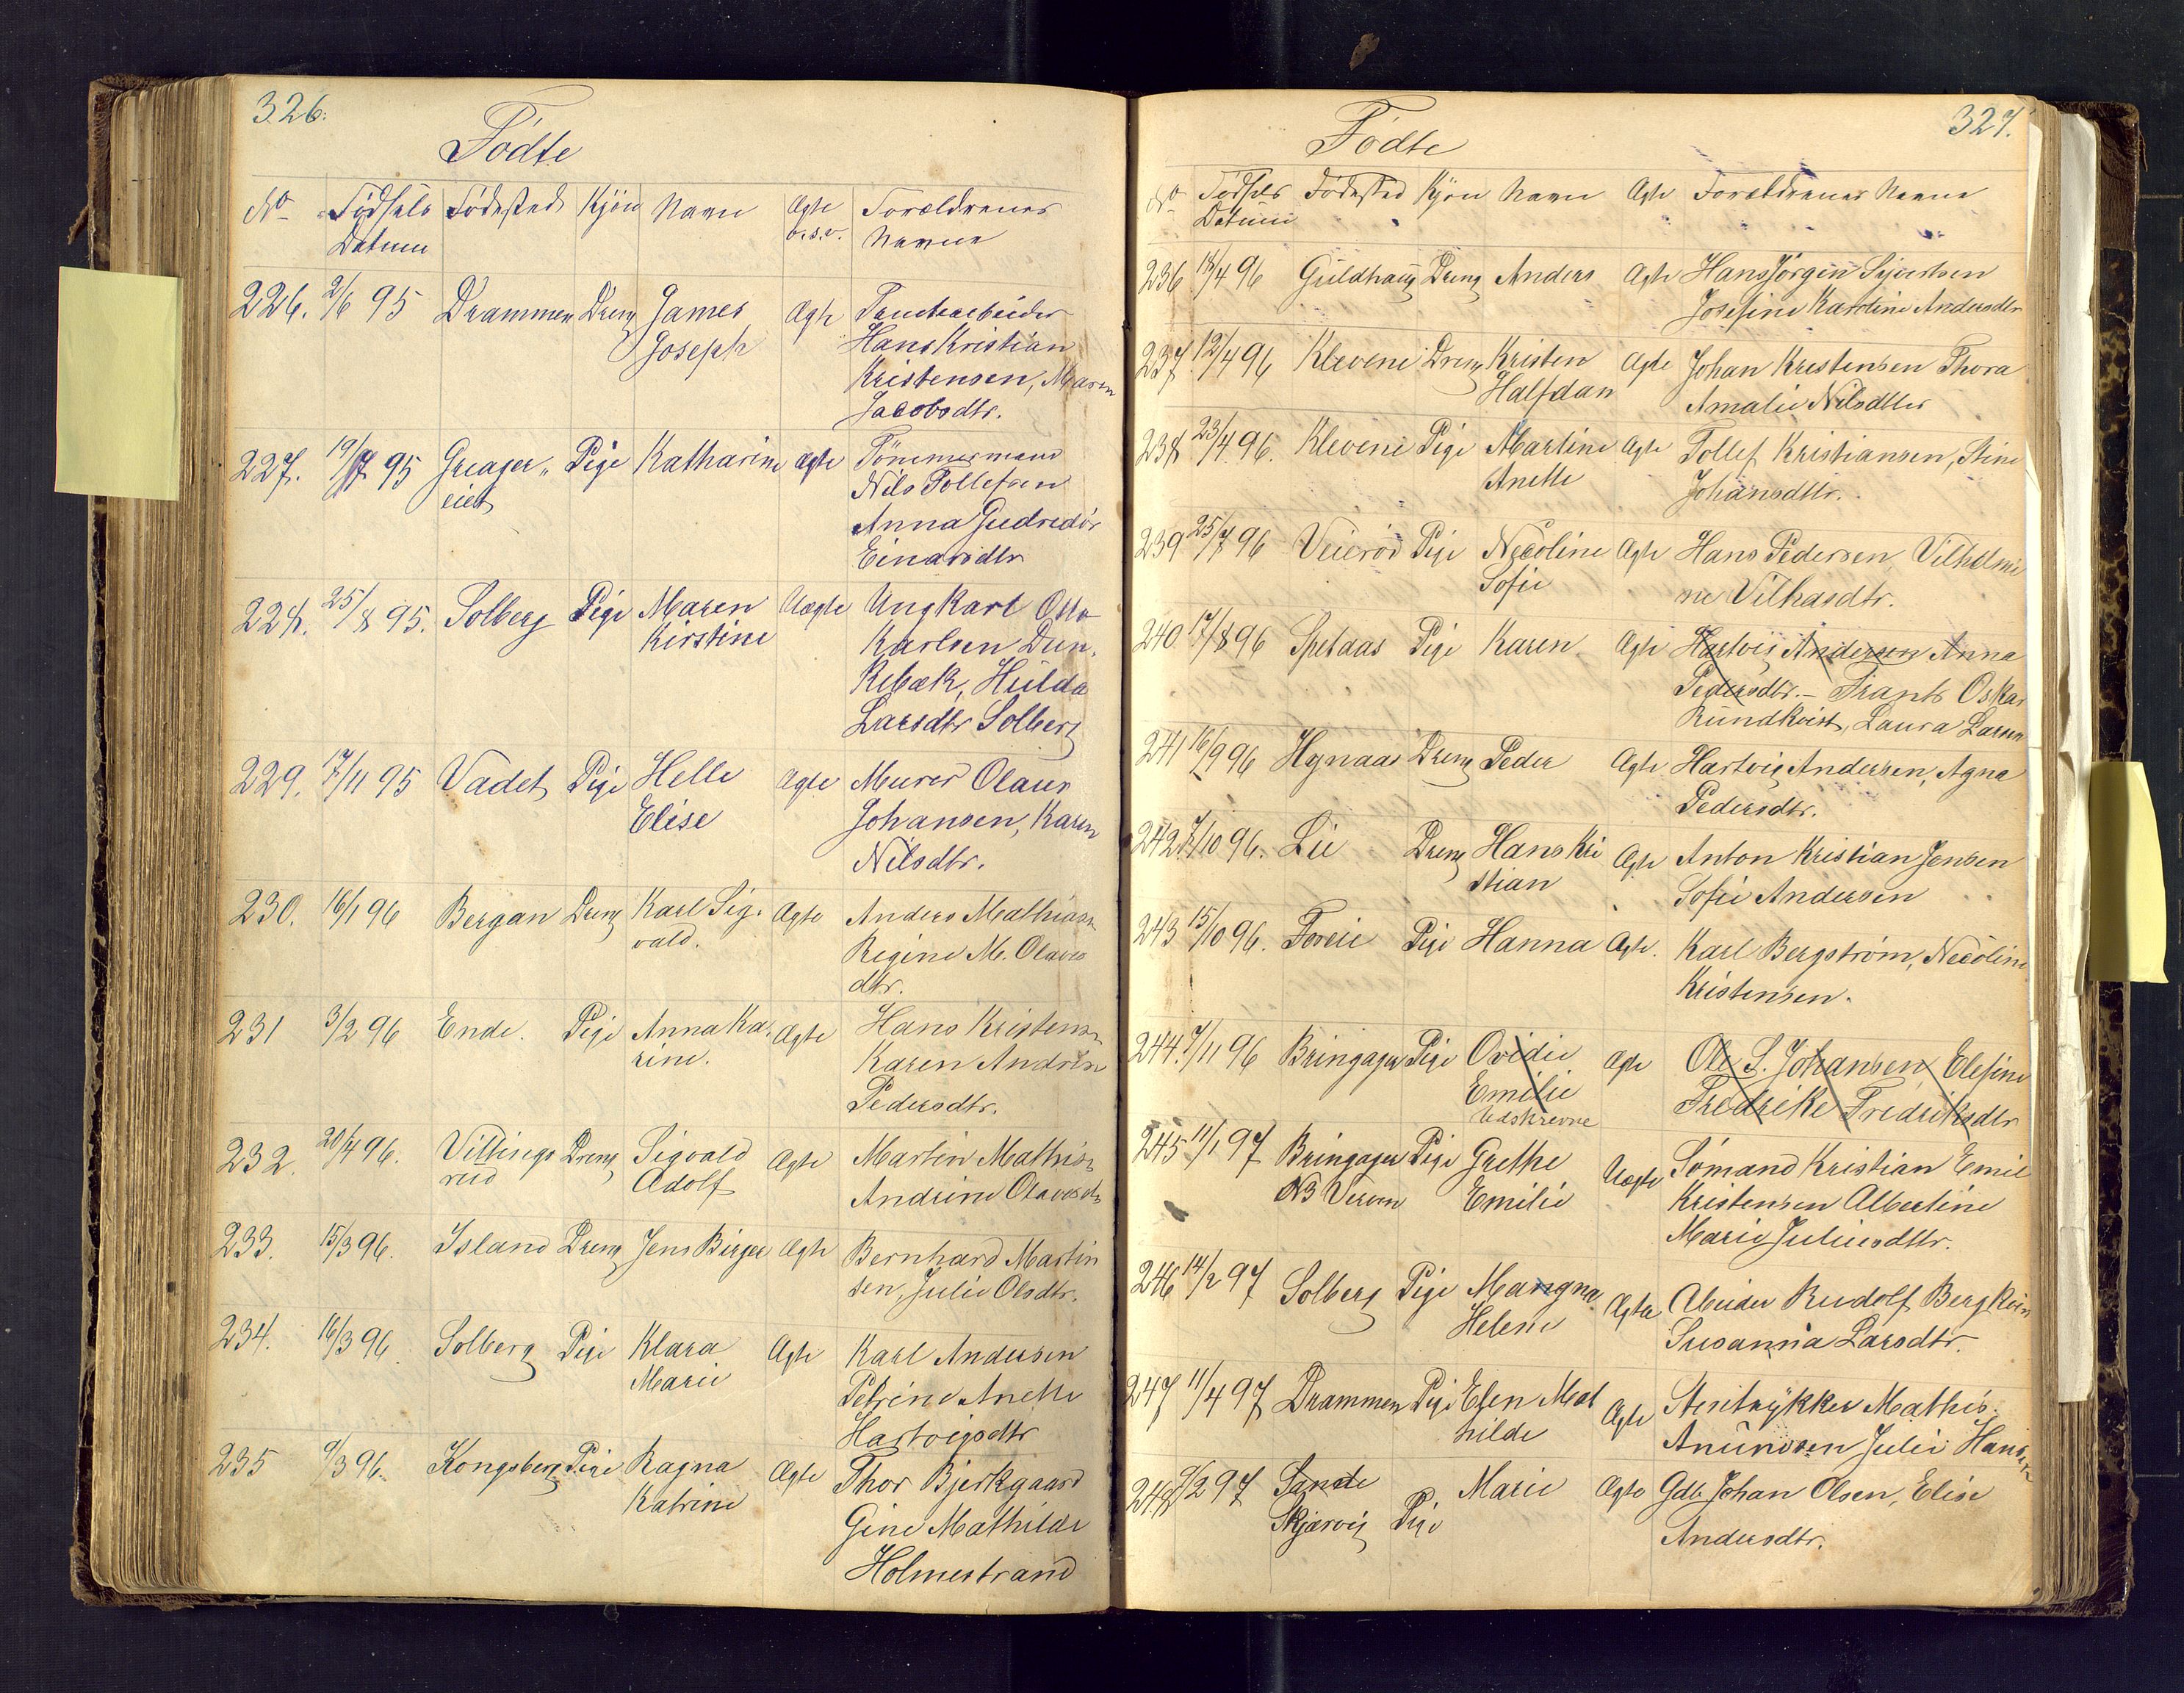 326.
Födte
No Födsels Datum Födested Kjön Navn Ægte o.s.v. Foreldrenes Navne
226. 2/6 95 Drammen Dreng James Joseph Ægte
Hans Kristian
Kristensen, Maren
Jacobsdtr.
227. 19/7 95 Greager„ Pige Katharine Ægte Tömmermand
eiet Nils Tollefsen
Anna Gudredör
Einarsdtr
228. 25/8 95. Solberg Pige Maren Uægte Ungkarl Otto
Kirstine Karlsen Dun„
Kebæk, Hulda
Larsdtr Solberg
229. 17/11 95 Vadet Pige Helle Ægte Murer Olaus
Elise Johansen, Karen
Nilsdtr.
230. 16/1 96 Bergan Dreng Karl Sig„ Ægte Anders Mathiasn
vald. Regine M. Olaves
dtr.
231 3/2 96 Ende. Pige Anna Ka„ Ægte Hans Kristensn
rine. Karen Andrea
Pedersdtr.
232. 20/4 96. Dreng Sigvald Ægte Martin Mathisn
rud Adolf Andrine Olavesdtr
233. 15/3 96. Island Dreng Jens Birger Ægte Bernhard Martin
sen, Julie Olsdtr.
234. 16/3 96. Solberg Pige Klara Ægte Karl Andersen
Marie Petrine Anette
Hartvigsdtr
235 9/3 96. Kongsberg Pige Ragna Ægte Thor Bjerkgaard
Katrine Gine Mathilde
Holmestrand
327.
Födte
No Födsels Datum Födested Kjön Navn Ægte Foreldrenes Navne
236 18/4 96 Guldhaug Dreng Anders Ægte Hans Jörgen Syvertsen
Josefine Karoline Andersdtr
237. 12/4 96 Klevene Dreng Kristen Ægte Johan Kristensen Thora
Halfdan Amalie Nilsdtter
238 23/4 96. Klevene Pige Martine Ægte Tollef Kristiansen, Stine
Anette Johansdttr.
239 25/7 96 Veieröd Pige Necoline Ægte Hans Pedersen, Vilhelmi
Sofie ne Vilhasdtr.
240 17/8 96 Spetaas Pige Karen Ægte Hartvig Andersen Anna
Pedersdtr. – Frants Oskar
Rundkvist, Laura Larsen
241 16/9 96 Hynaas Dreng Peder Ægte Hartvig Andersen, Agna
Pedersdtr.
242 7/10 96. Lie Dreng Hans Kri Ægte Anton Kristian Jensen
stian Sofie Andersen
243 15/10 96. Foreie Pige Hanna Ægte. Karl Bergström, Necoline
Kristensen.
244. 7/11 96 Bringager Pige Ovidie Ægte Ole S. Johansen Elefine
Emilie Fredrike Fredriksdtr
Udskrevne
245 11/1 97 Bringager Pige Grethe Uægte Sömand Kristian Emil
Emilie Kristensen Albertine
Marie Juliusdttr.
246 14/2 97 Solberg Pige Mangna Ægte Rudolf Bergkvin
Helene Susanna Larsdtr.
247 11/4 97 Drammen Pige Elen Mat Ægte Mathis
hilde Anundsen Julie Hansen
248 9/2 97 Sande Marie Ægte Gdb. Johan Olsen, Elise
Skjærvig Pige Andersdtr.